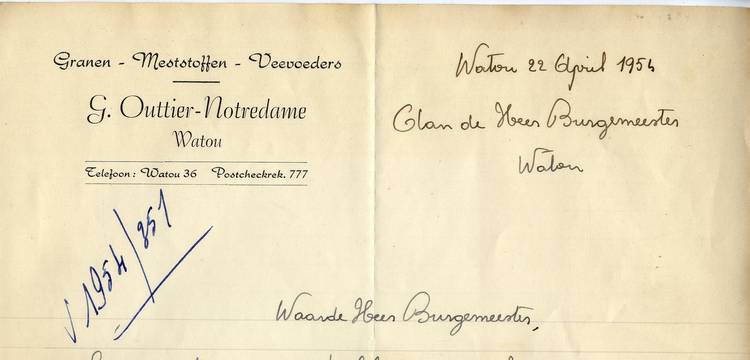 Granen - Meststoffen - Veevoeders
G. Outtier-Notredame
Watou
Telefoon : Watou 36 Postcheckrek. 777
Watou 22 April 1954
Aan de Heer Burgemeester
Watou
1954/851
Waarde Heer Burgemeester,